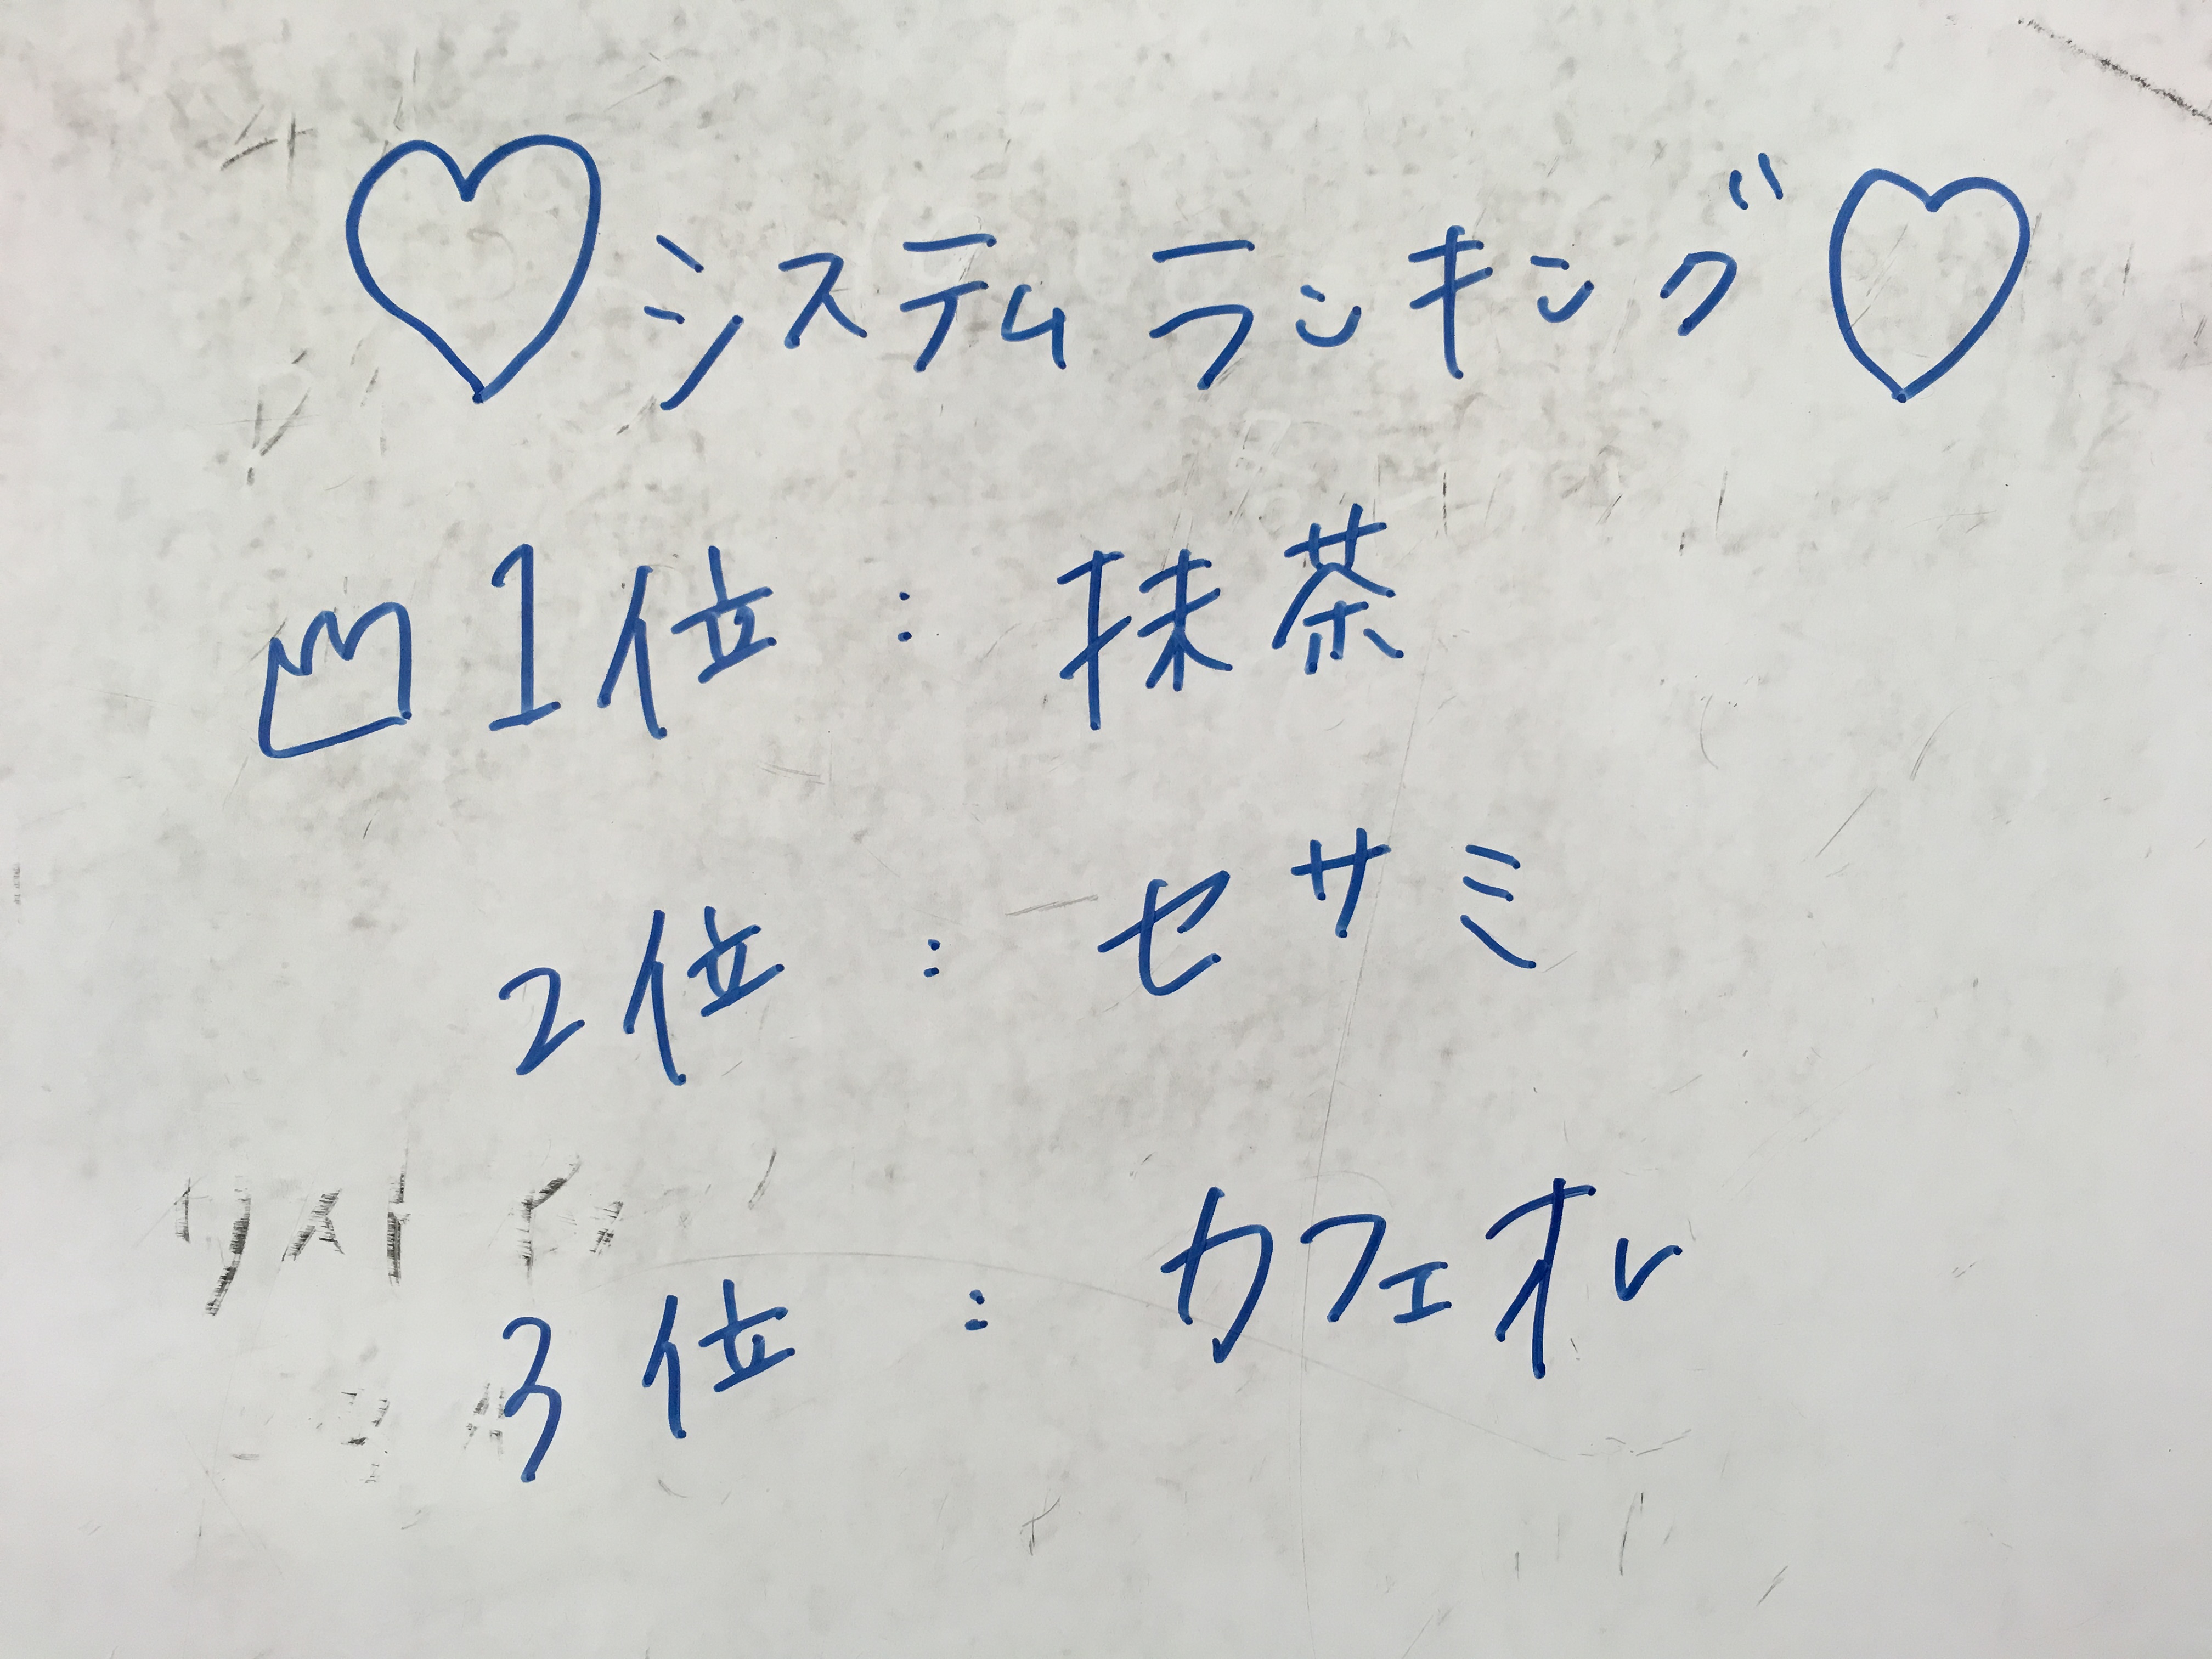 ♡システムランキング♡
1位：抹茶
2位：セサミ
3位：カフェオレ